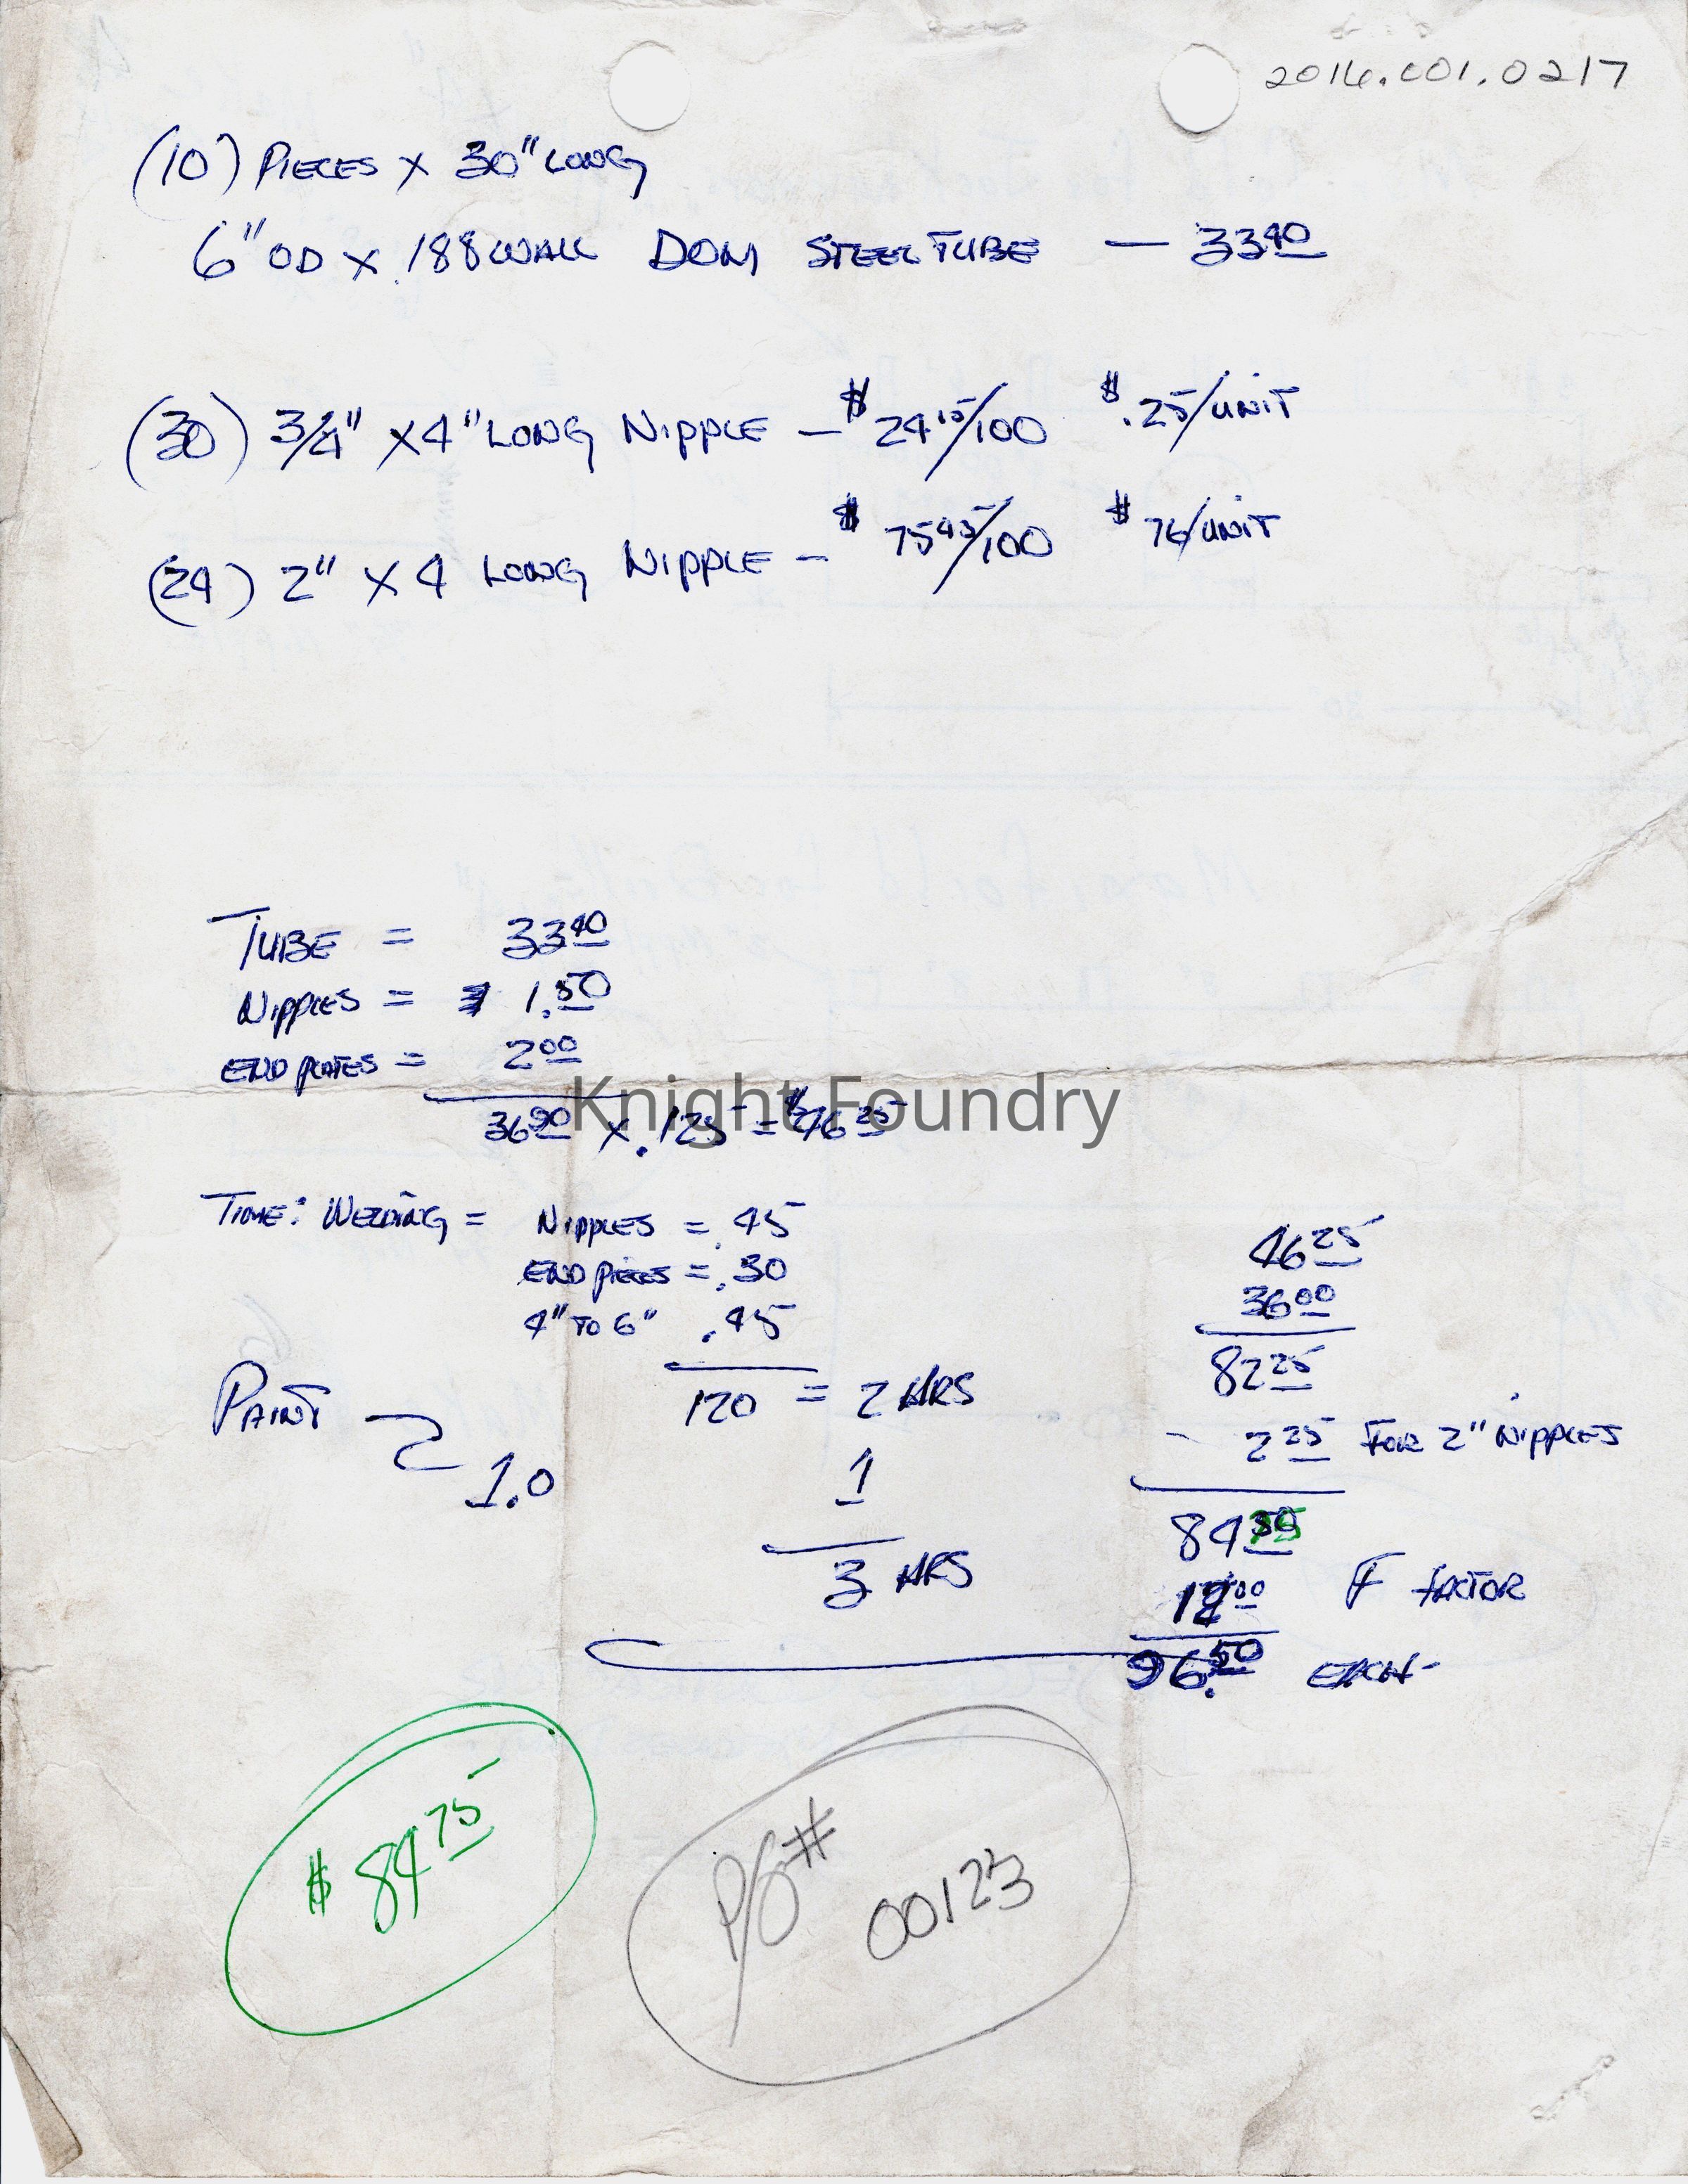 2016.001.0217
(10) PIECES X 30" LONG
6" OD X .188 WALL DOM STEEL TUBE — 33 40
(30) 3/4" X 4" LONG NIPPLE — $24 15/100 $.25/UNIT
(24) 2" X 4 LONG NIPPLE — $75 45/100 $76/UNIT
TUBE = 33 40
NIPPLES = 1.50
END PLATES = 2 00
36 90 X .125 = $46 25
Knight Foundry
TIME: WELDING = NIPPLES = .45
END PIECES = .30
4" TO 6" .45
120 = 2 HRS
PAINT 1.0
1
3 HRS
46 25
36 00
82 25
2 25 FOR 2" NIPPLES
84
12 00 F FACTOR
96.50 EACH
$84 75
P/O# 00123